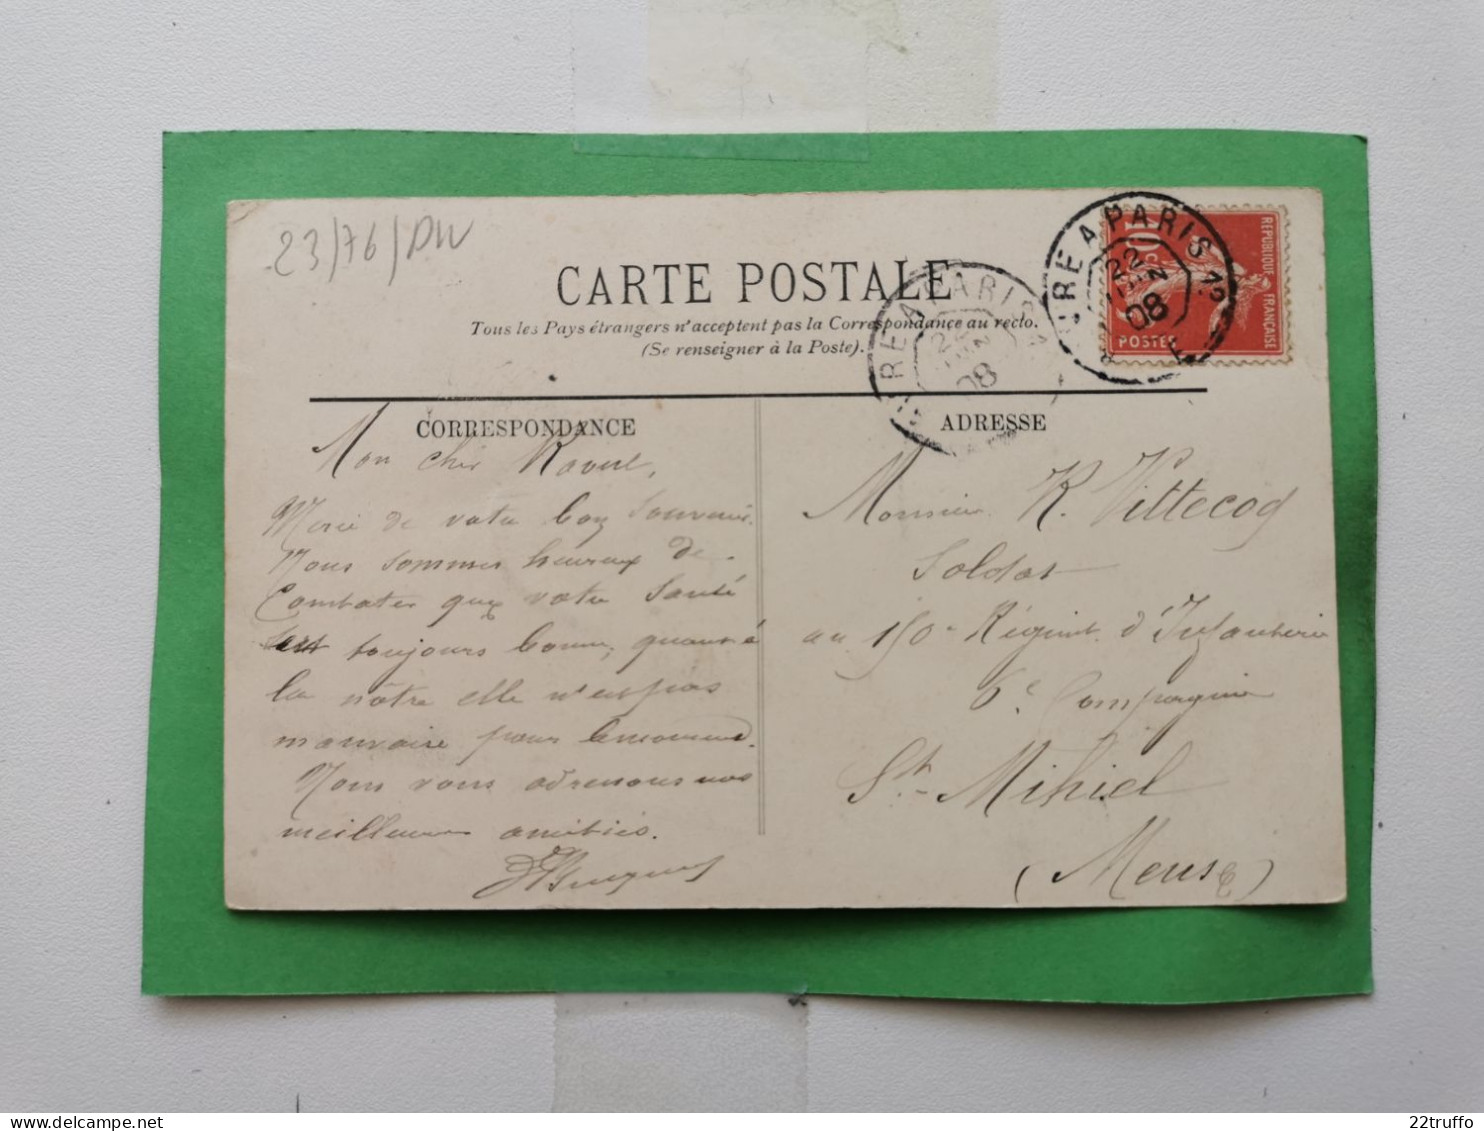 23/76/DW
CARTE POSTALE
Tous les Pays étrangers n'acceptent pas la Correspondance au recto.
(Se renseigner à la Poste).
RE A PARIS
22
JUIN
08
RE A PARIS
22
08
10c
REPUBLIQUE FRANÇAISE
POSTES
CORRESPONDANCE
Mon cher Raoul,
Merci de votre bon souvenir.
Nous sommes heureux de
Constater que votre santé
est toujours bonne, quant à
la nôtre elle n'est pas
mauvaise pour le moment.
Nous vous adressons nos
meilleures amitiés.
ADRESSE
Monsieur R. Vittecoq
Soldat
au 150e Régiment d'Infanterie
6e Compagnie
St-Mihiel
(Meuse)
22truffo
delcampe.net